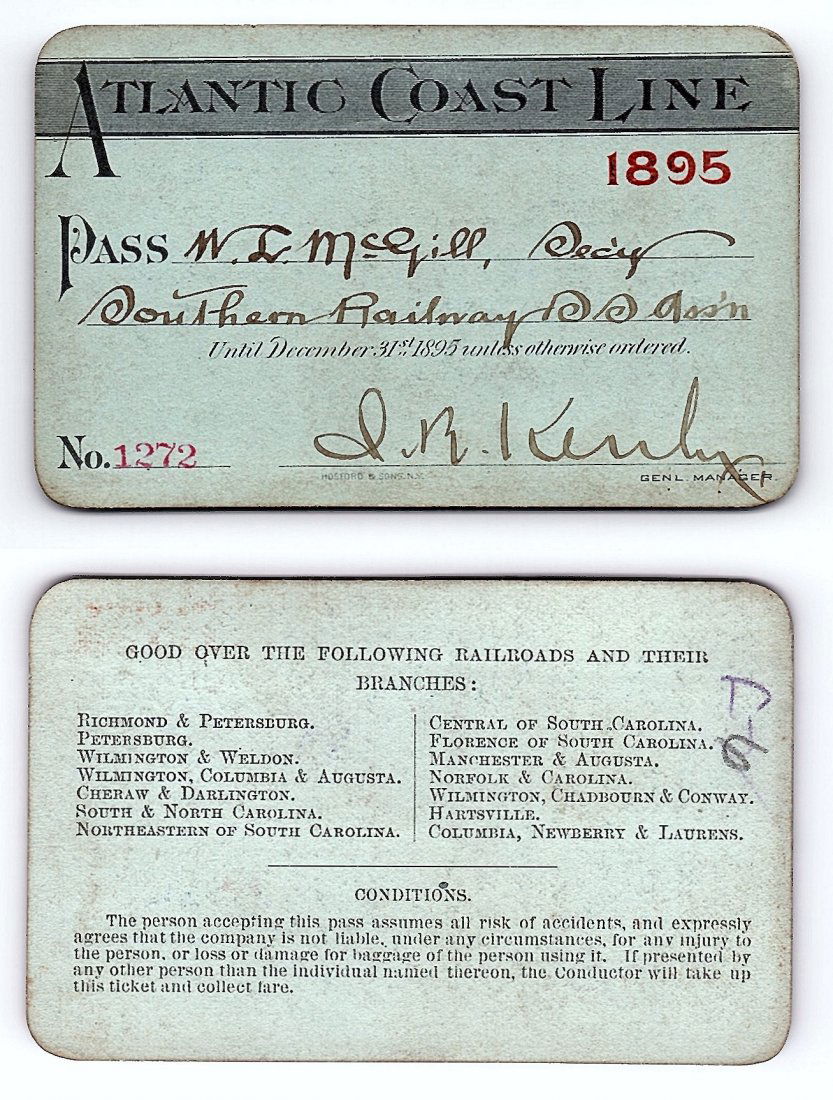 ATLANTIC COAST LINE
1895
PASS W. L. McGill, Secy
Southern Railway S S Ass'n
Until December 31st 1895 unless otherwise ordered.
No. 1272
J. R. Kenly
HOSFORD & SONS. N.Y.
GENL. MANAGER.
GOOD OVER THE FOLLOWING RAILROADS AND THEIR
BRANCHES:
RICHMOND & PETERSBURG.
PETERSBURG.
WILMINGTON & WELDON.
WILMINGTON, COLUMBIA & AUGUSTA.
CHERAW & DARLINGTON.
SOUTH & NORTH CAROLINA.
NORTHEASTERN OF SOUTH CAROLINA.
CENTRAL OF SOUTH CAROLINA.
FLORENCE OF SOUTH CAROLINA.
MANCHESTER & AUGUSTA.
NORFOLK & CAROLINA.
WILMINGTON, CHADBOURN & CONWAY.
HARTSVILLE.
COLUMBIA, NEWBERRY & LAURENS.
CONDITIONS.
The person accepting this pass assumes all risk of accidents, and expressly
agrees that the company is not liable, under any circumstances, for any injury to
the person, or loss or damage for baggage of the person using it. If presented by
any other person than the individual named thereon, the Conductor will take up
this ticket and collect fare.